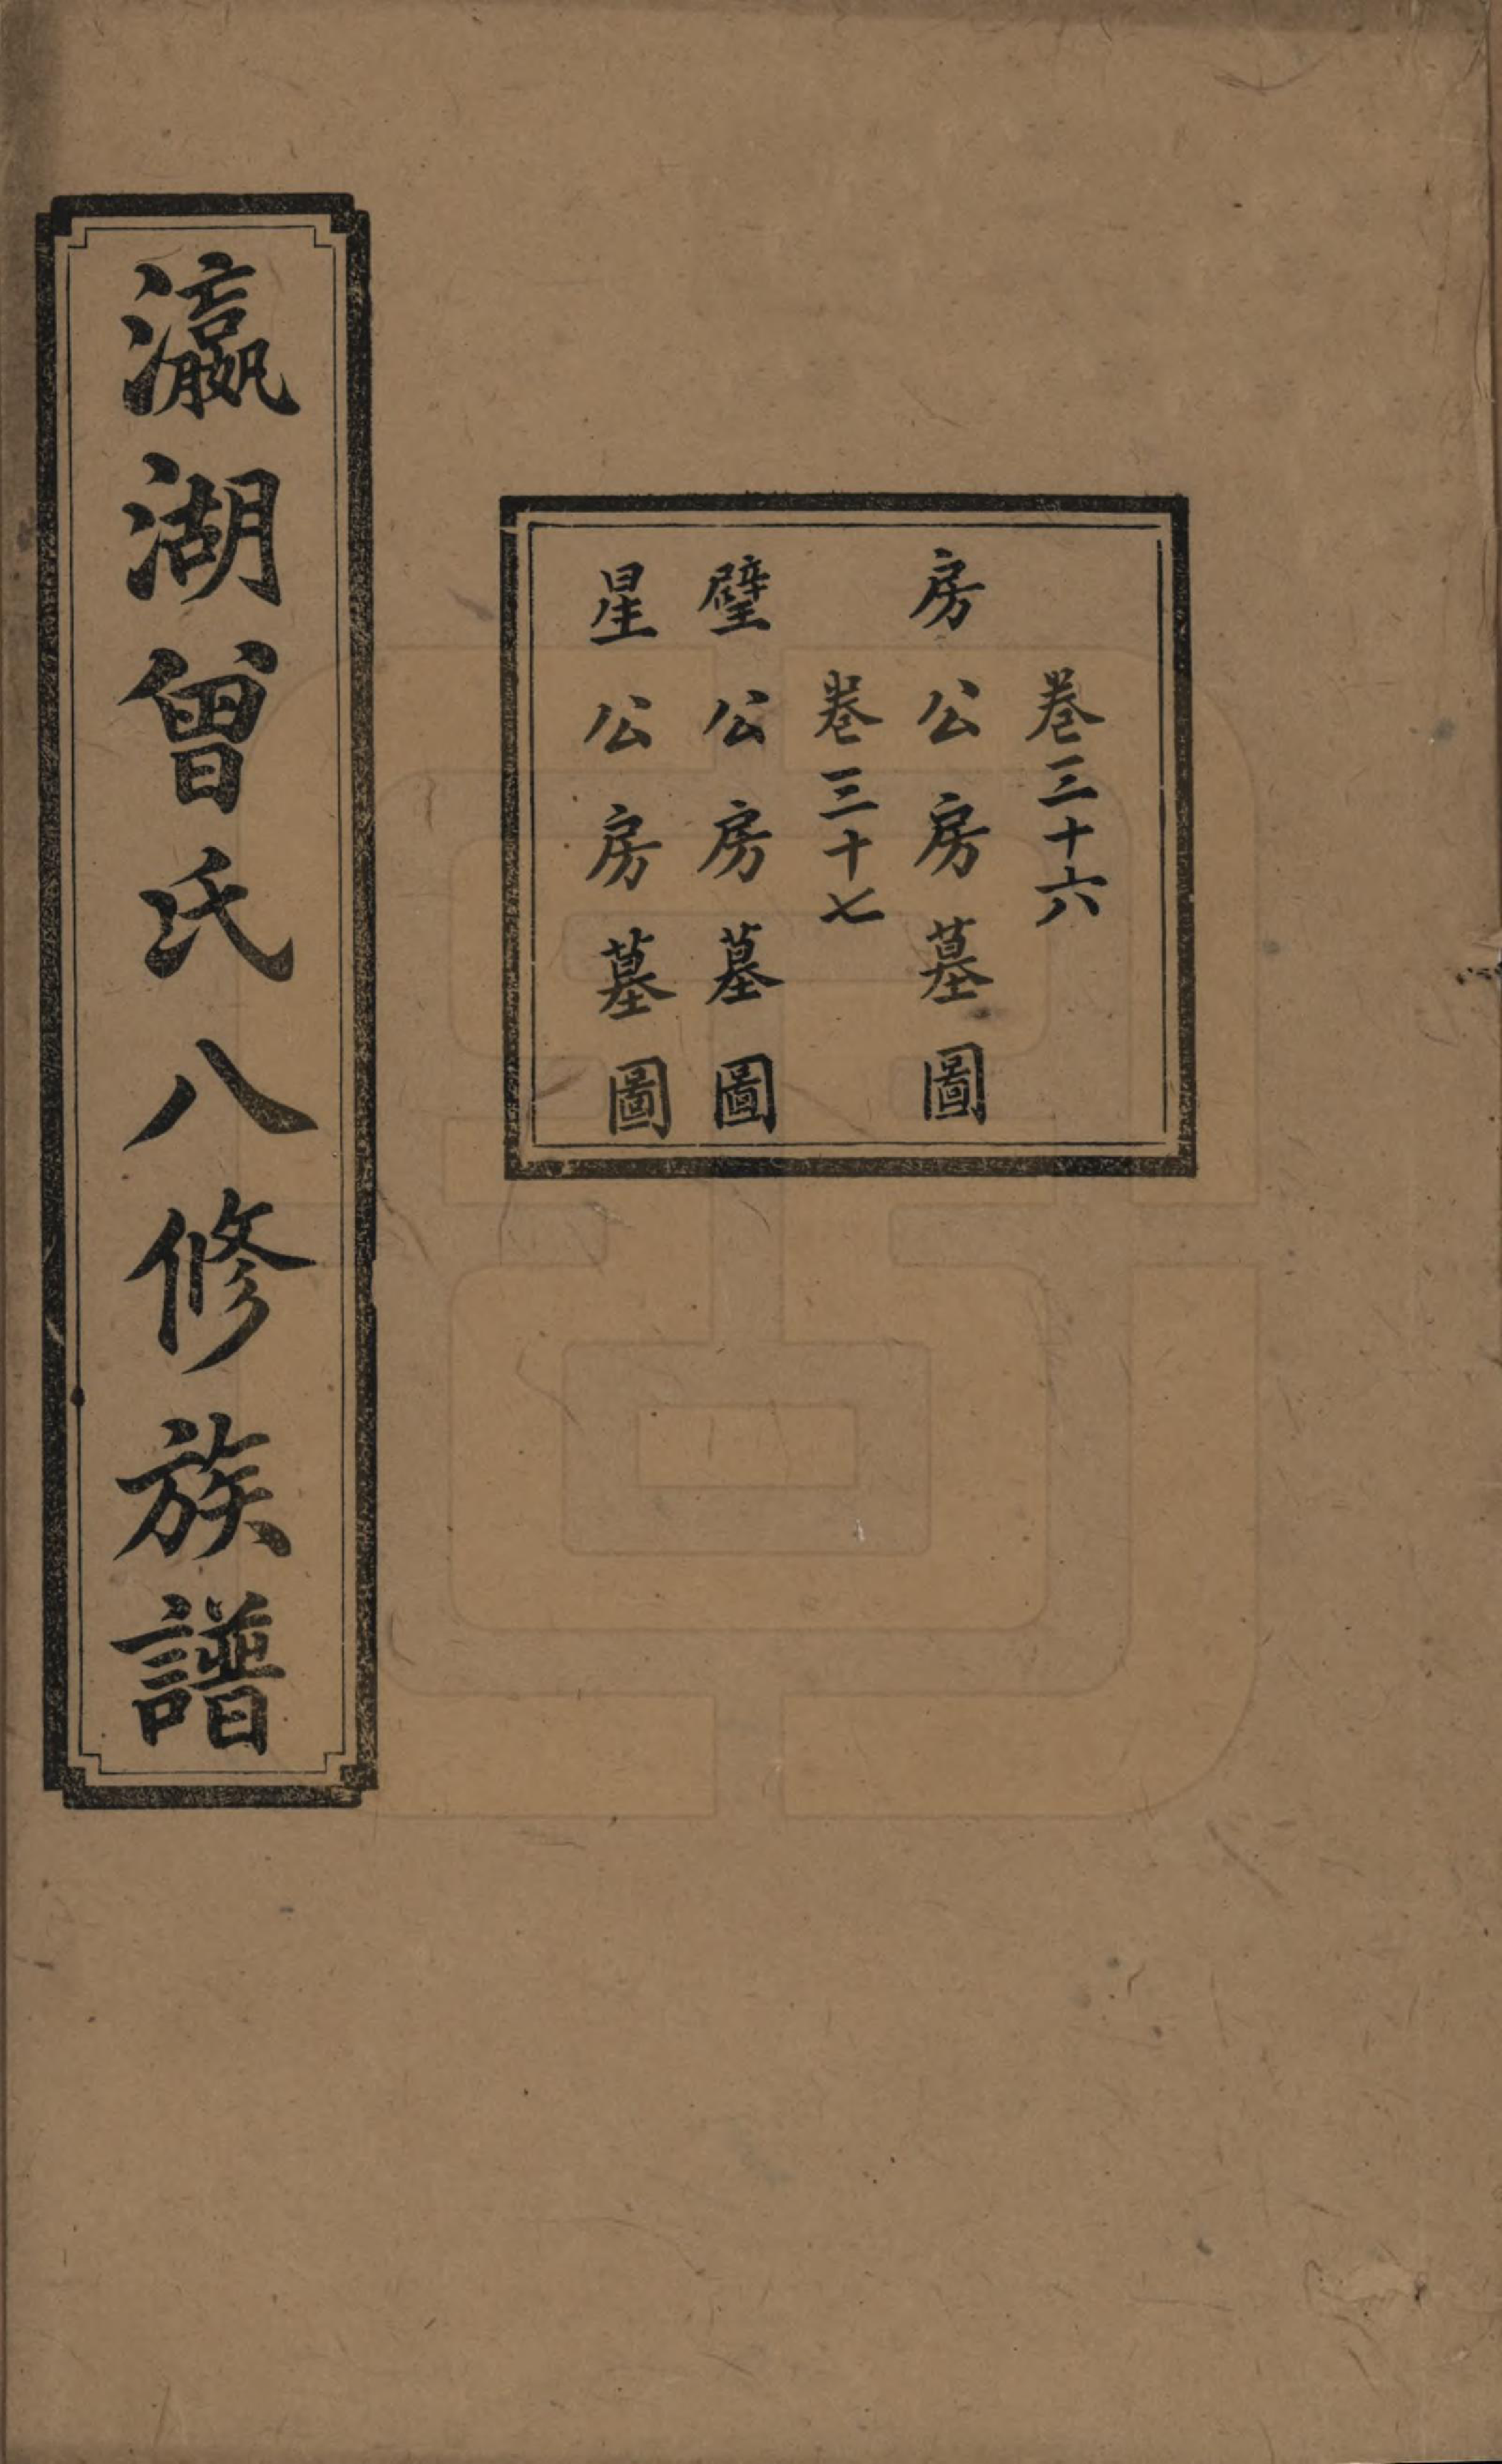 卷三十六
房公房墓圖
卷三十七
璧公房墓圖
星公房墓圖
瀛湖曾氏八修族譜